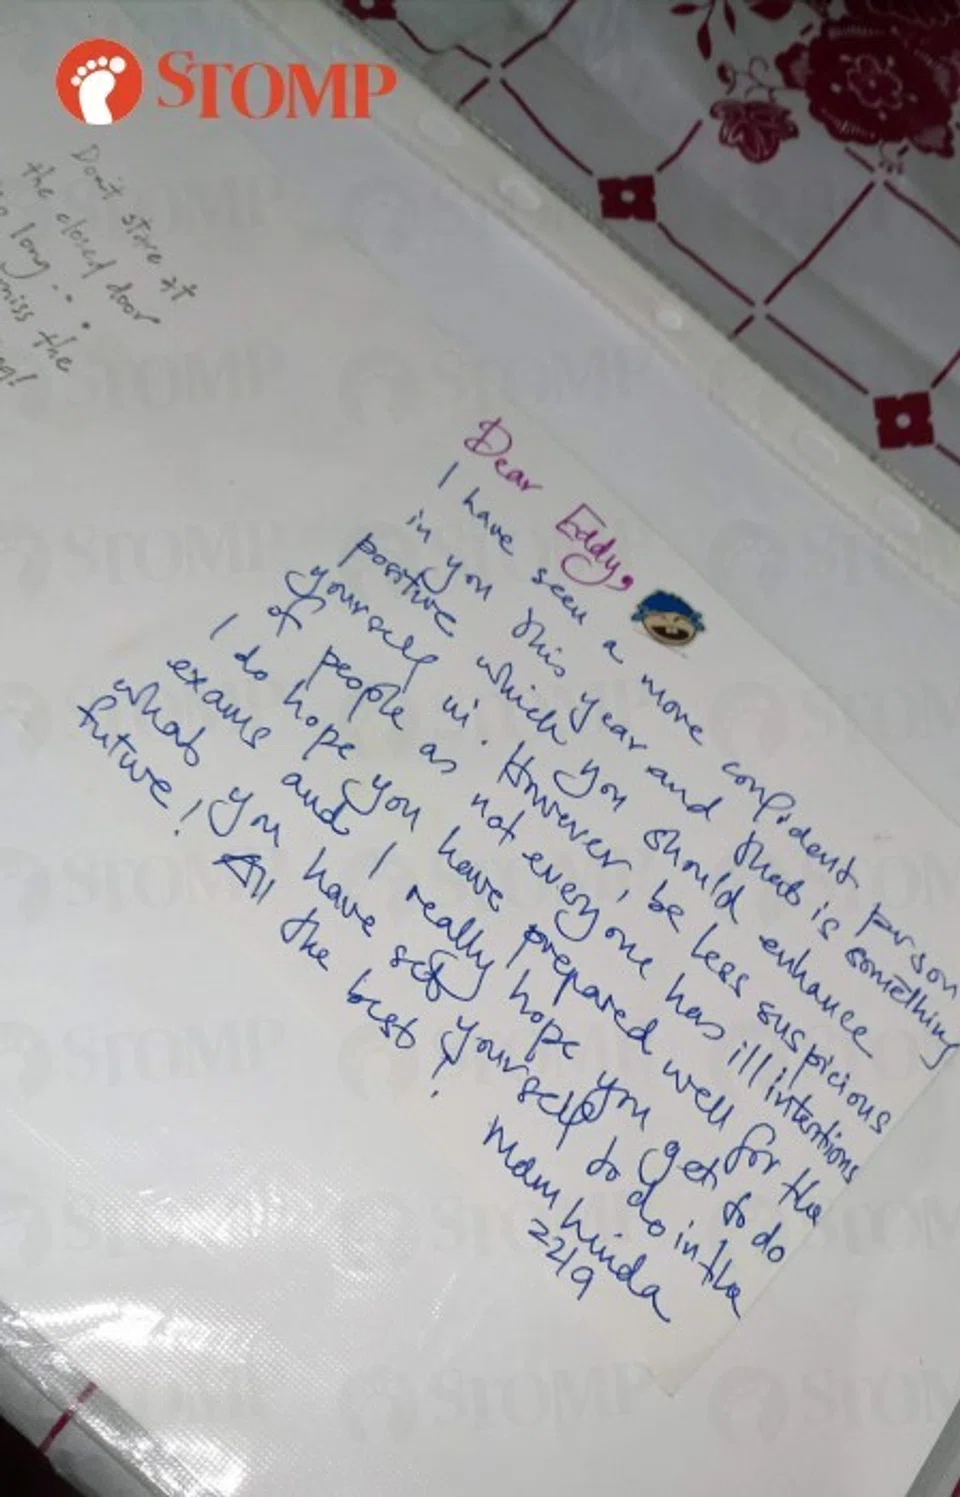 STOMP
Don't stare at
the closed door
so long . .
miss the
Dear Eddy,
I have seen a more confident person
in you this year and that is something
positive which you should enhance
yourself in. However, be less suspicious
of people as not everyone has ill intentions
I do hope you have prepared well for the
exams and I really hope you get to do
what you have set yourself to do in the
future!
All the best!
Mdm Linda
22/9